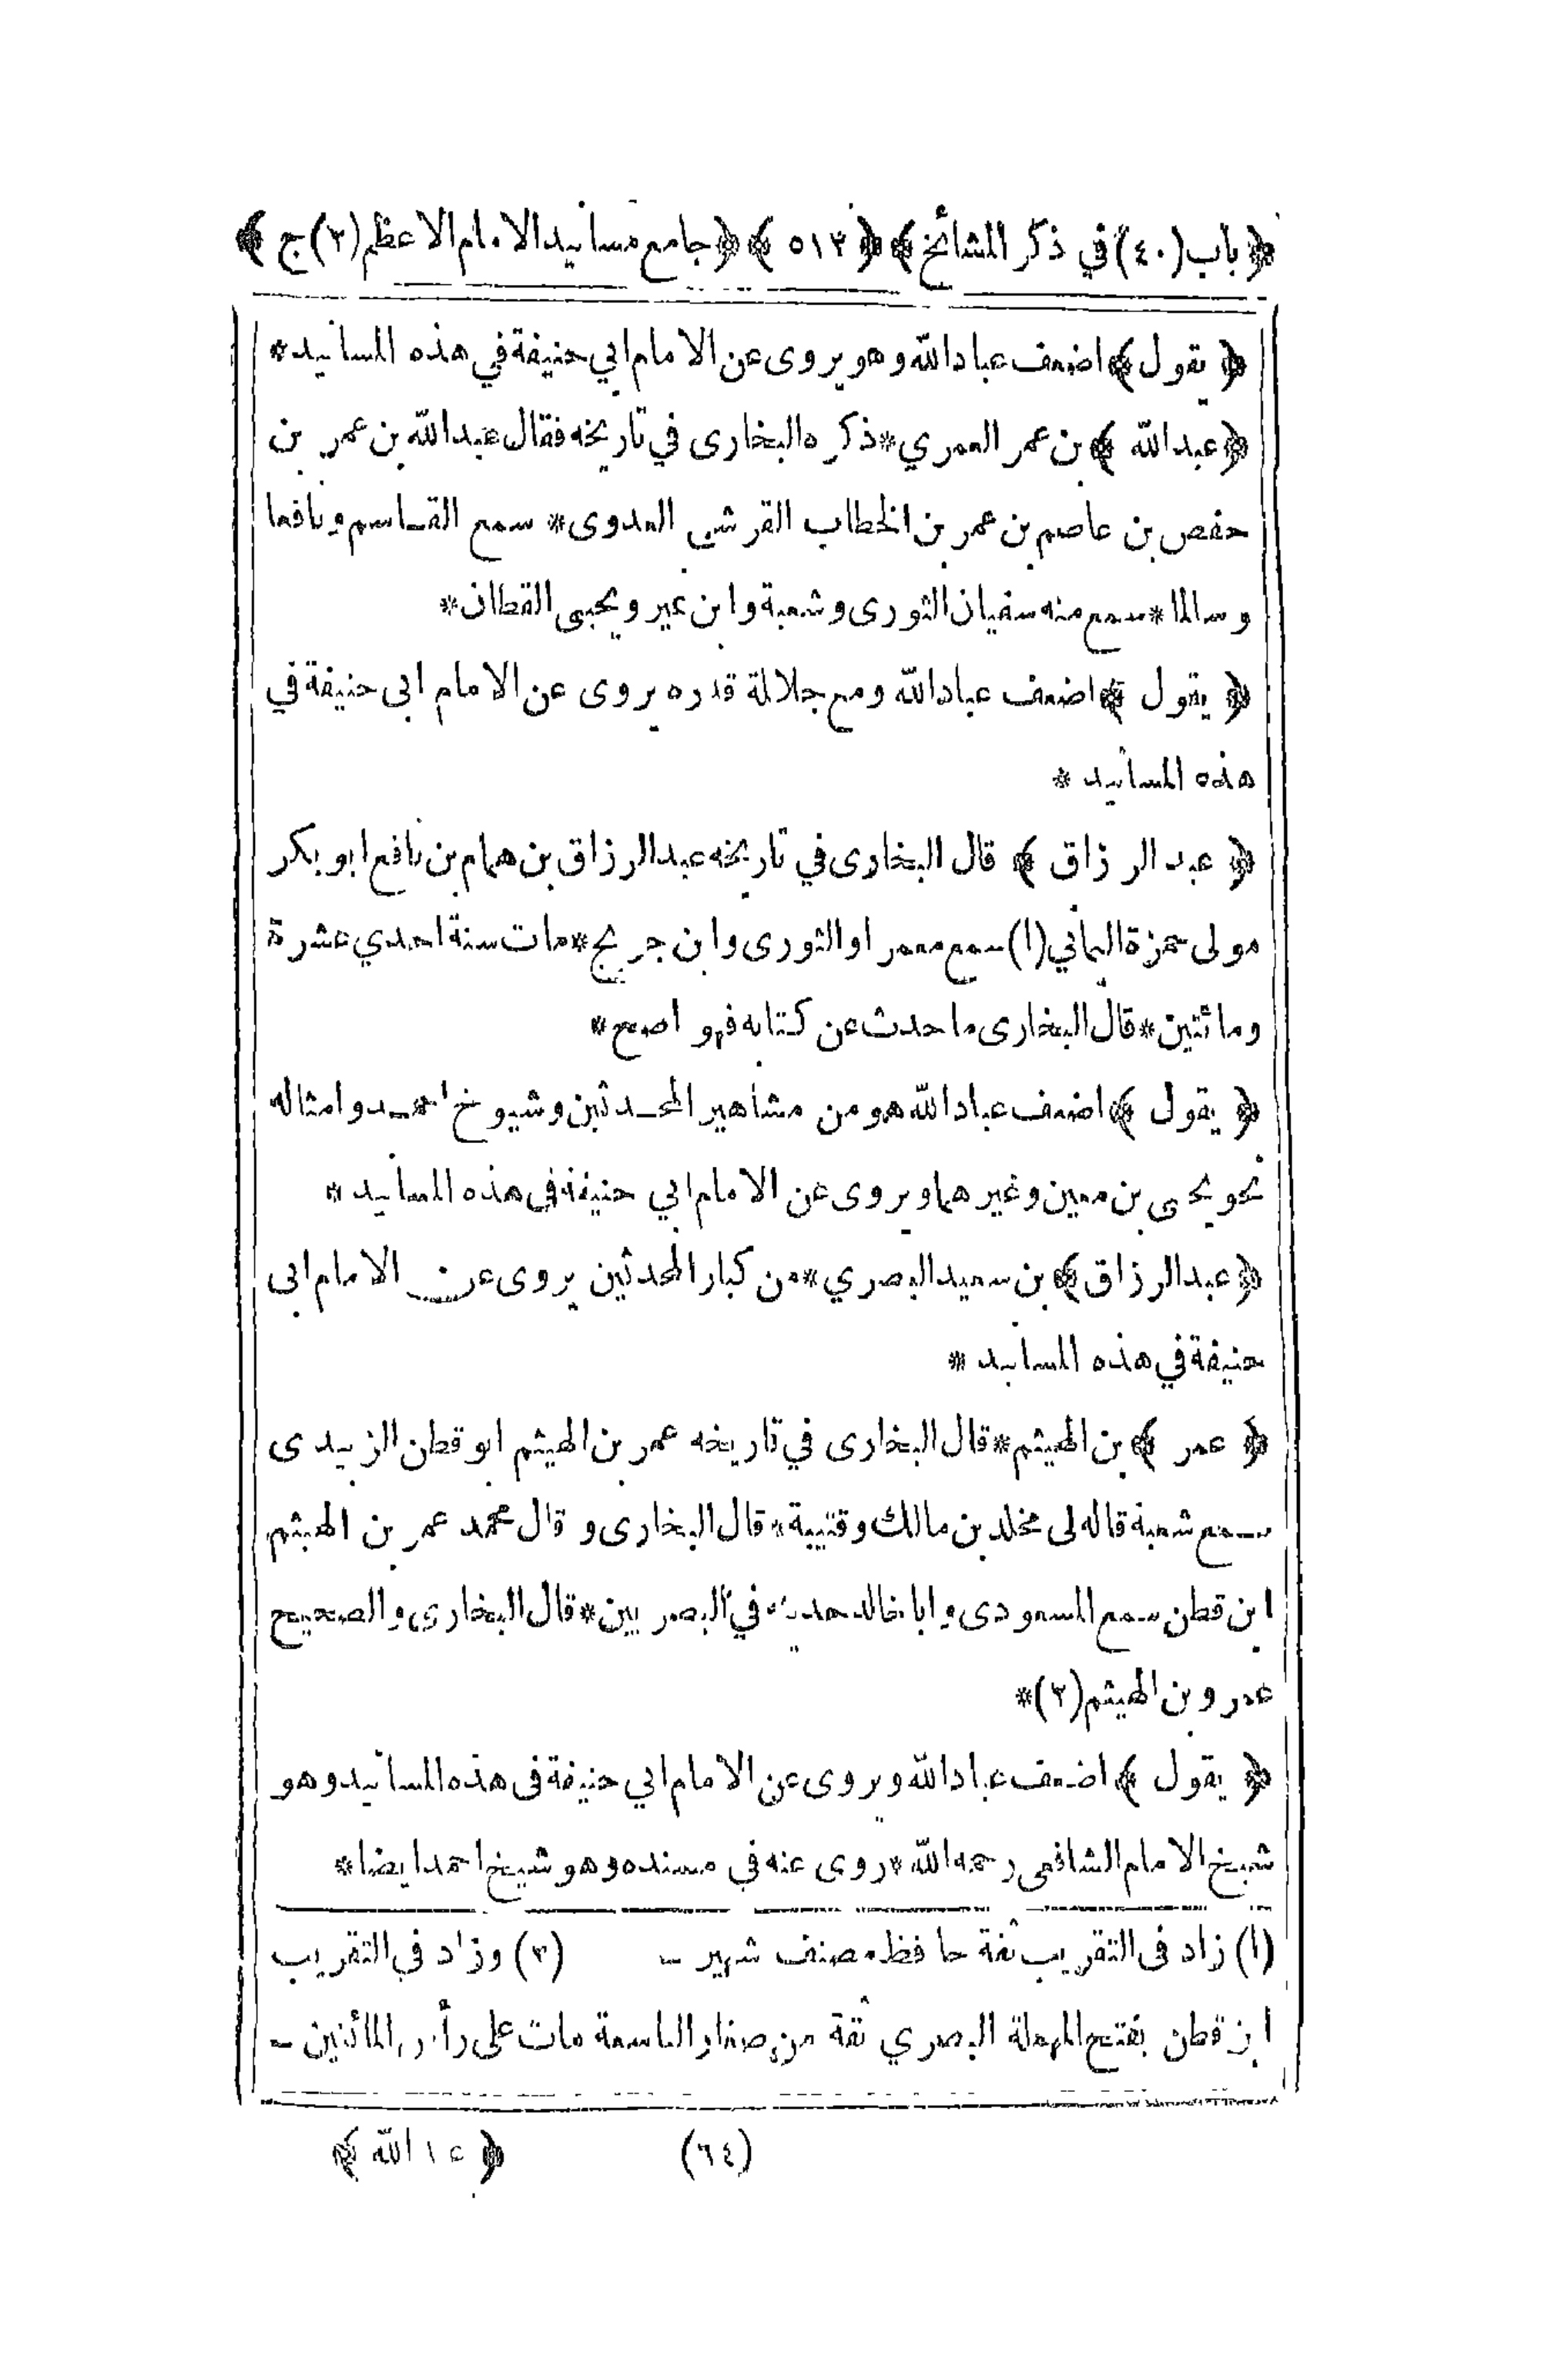 ﴿ باب (٤٠) في ذكر المشائخ ﴾ ﴿ ٥١٣ ﴾ ﴿ جامع مسانيد الامام الاعظم (٢) ج ﴾
﴿ يقول ﴾ اضعف عباد الله وهو يروى عن الامام ابي حنيفة في هذه المسانيد *
﴿ عبد الله ﴾ بن عمر العمري * ذكره البخارى في تاريخه فقال عبد الله بن عمر بن
حفص بن عاصم بن عمر بن الخطاب القرشي العدوى * سمع القاسم ونافعا
وسالما * سمع منه سفيان الثورى وشعبة وابن نمير ويحيى القطان *
﴿ يقول ﴾ اضعف عباد الله ومع جلالة قدره يروى عن الامام ابى حنيفة في
هذه المسانيد *
﴿ عبد الرزاق ﴾ قال البخارى في تاريخه عبد الرزاق بن همام بن نافع ابو بكر
مولى حمزة اليماني (١) سمع معمرا والثورى وابن جريج * مات سنة احدي عشرة
ومائتين * قال البخارى ما حدث عن كتابه فهو اصح *
﴿ يقول ﴾ اضعف عباد الله هو من مشاهير المحدثين وشيوخ احمد وامثاله
نحو يحيى بن معين وغيرهما ويروى عن الامام ابي حنيفة فى هذه المسانيد *
﴿ عبد الرزاق ﴾ بن سعيد البصري * من كبار المحدثين يروى عن الامام ابى
حنيفة في هذه المسانيد *
﴿ عمر ﴾ بن الهيثم * قال البخارى في تاريخه عمر بن الهيثم ابو قطن الزبيدى
سمع شعبة قاله لى مخلد بن مالك وقتيبة * قال البخارى وقال محمد عمر بن الهيثم
ابن قطن سمع المسعودى وابا خالد حديثه في البصريين * قال البخارى والصحيح
عمرو بن الهيثم (٢) *
﴿ يقول ﴾ اضعف عباد الله ويروى عن الامام ابي حنيفة فى هذه المسانيد وهو
شيخ الامام الشافعى رحمه الله * روى عنه في مسنده وهو شيخ احمد ايضا *
(١) زاد فى التقريب ثقة حافظ مصنف شهير - (٢) وزاد في التقريب
ابن قطن بفتح المهملة البصري ثقة من صغار التاسعة مات على رأس المائتين -
(٦٤) ﴿ عا الله ﴾